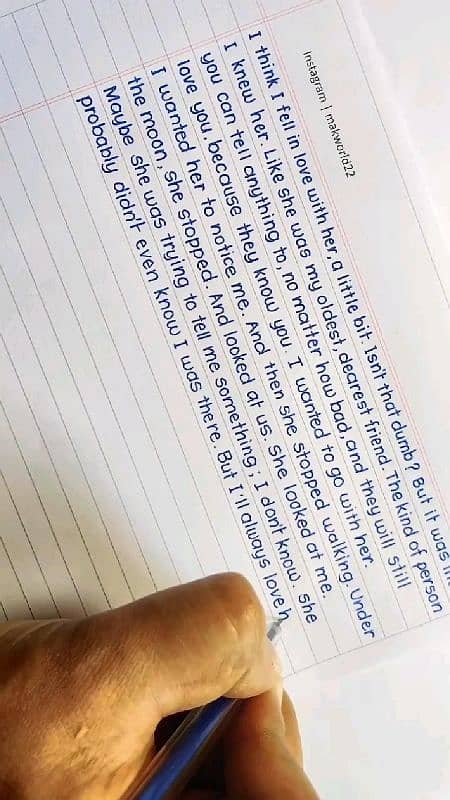 Instagram | makworld22
I think I fell in love with her, a little bit. Isn't that dumb? But it was
I knew her. Like she was my oldest, dearest friend. The kind of person
you can tell anything to, no matter how bad, and they will still
love you, because they know you. I wanted to go with her.
I wanted her to notice me. And then she stopped walking. Under
the moon, she stopped. And looked at us. She looked at me.
Maybe she was trying to tell me something; I dont know. She
probably didn't even know I was there. But I'll always love h